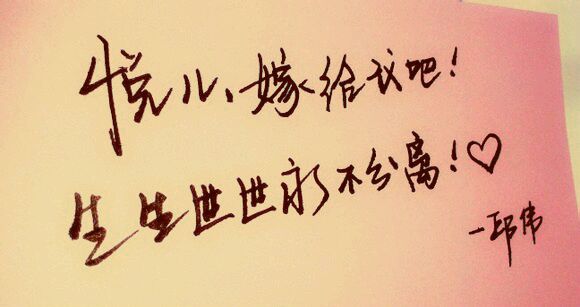 悦儿、嫁给我吧！
生生世世永不分离！♡
－邱伟